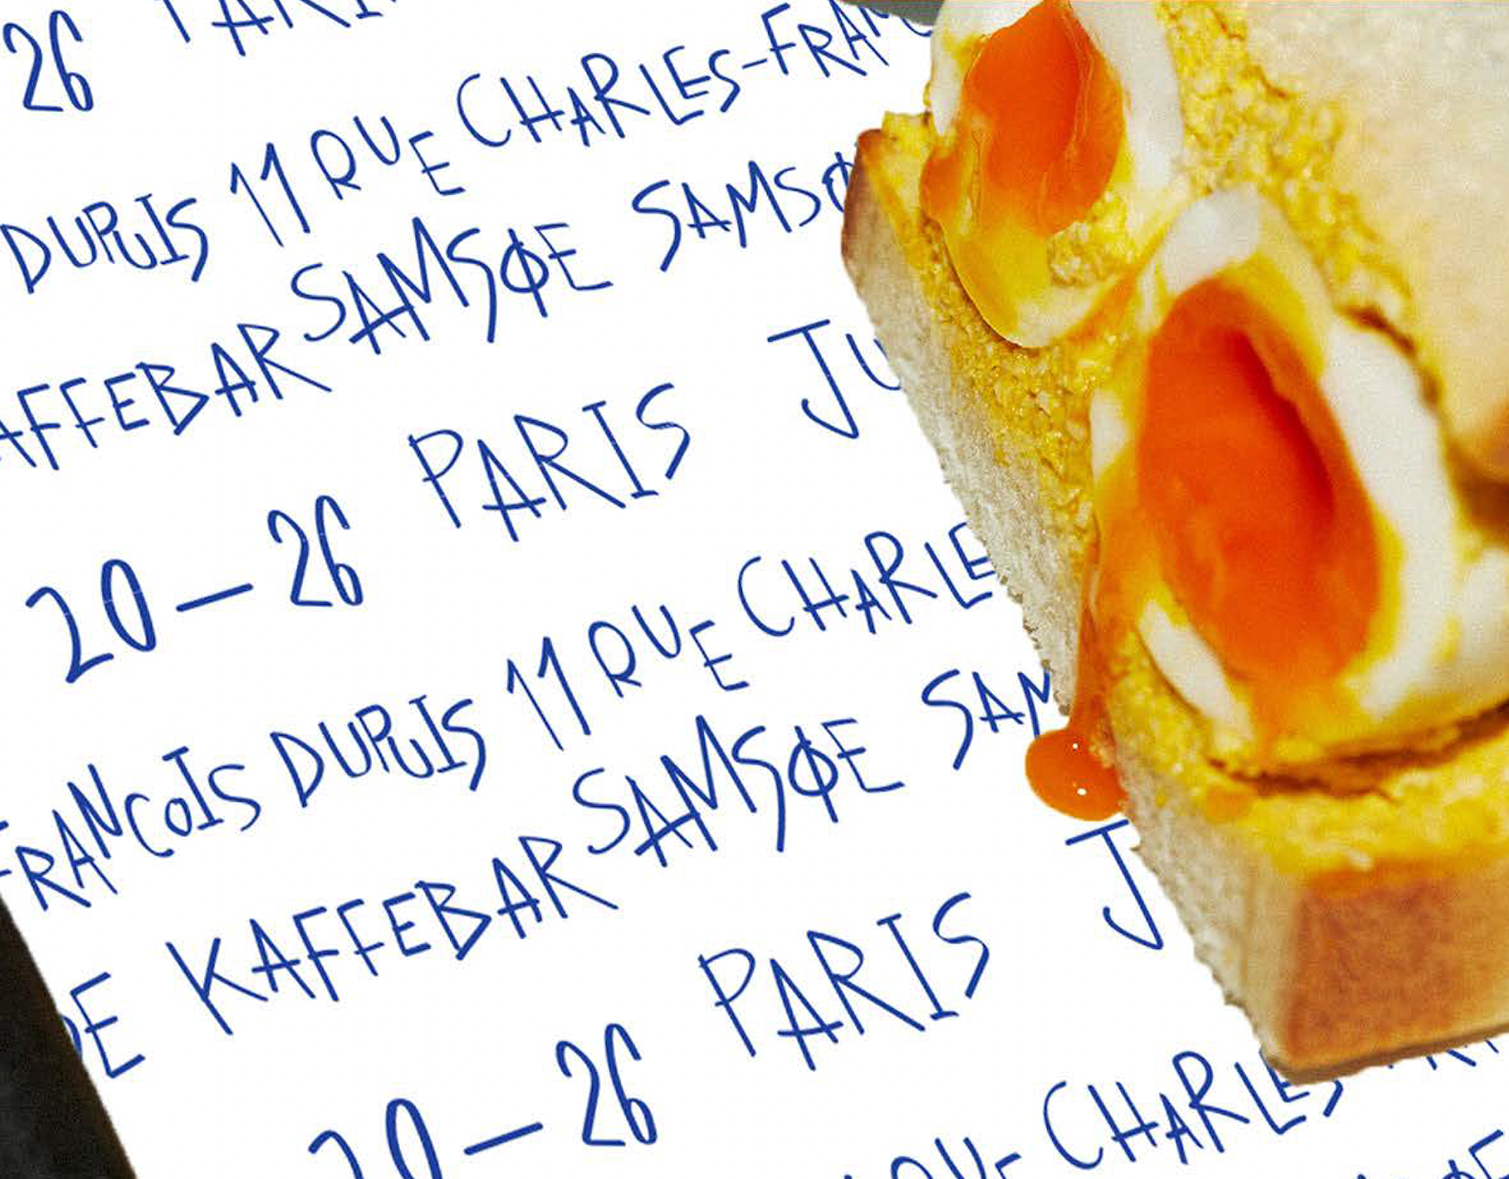 26 PARIS
DUPUIS 11 RUE CHARLES-FRAN
AFFEBAR SAMSØE SAMSØ
20–26 PARIS JU
FRANCOIS DUPUIS 11 RUE CHARLE
E KAFFEBAR SAMSØE SAM
20–26 PARIS J
RUE CHARLES